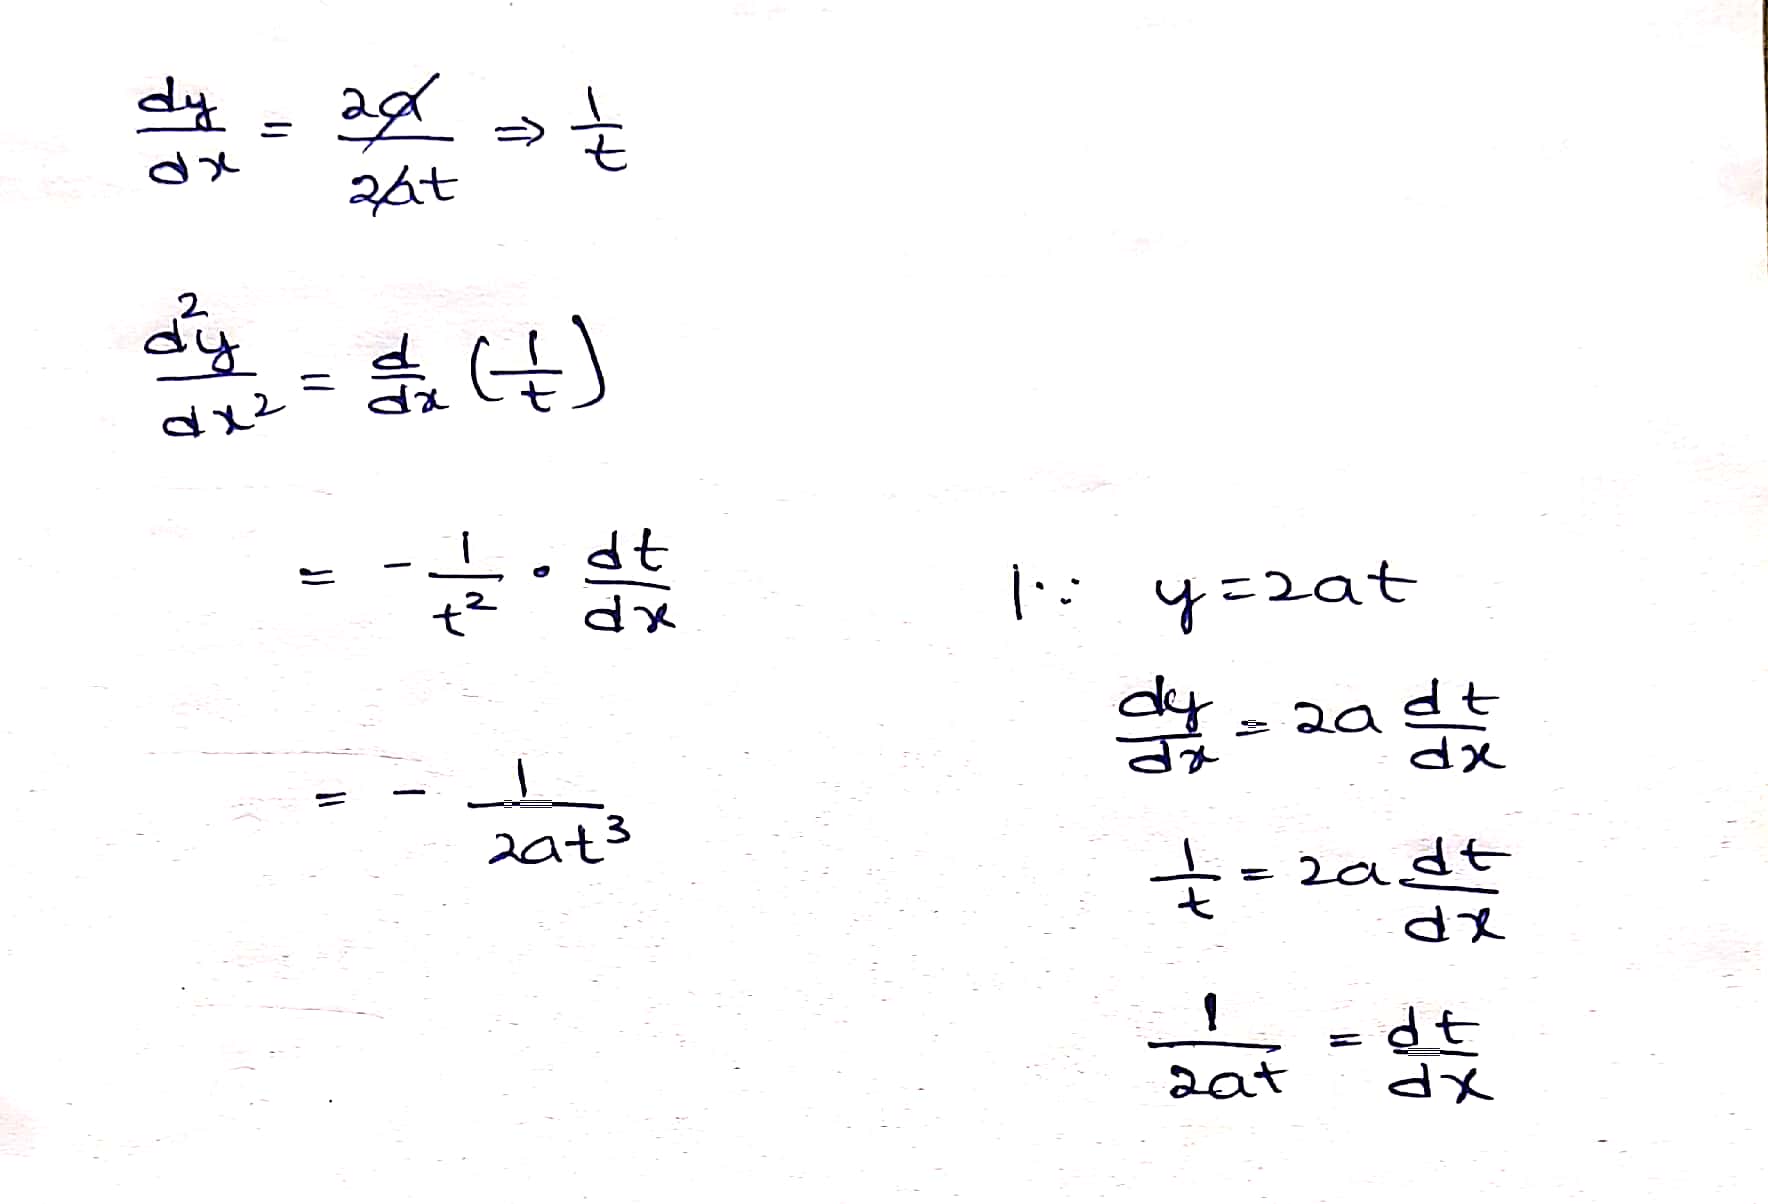 dy/dx = 2a/2at ⇒ 1/t
d²y/dx² = d/dx (1/t)
= - 1/t² · dt/dx
= - 1/2at³
|∵ y = 2at
dy/dx = 2a dt/dx
1/t = 2a dt/dx
1/2at = dt/dx